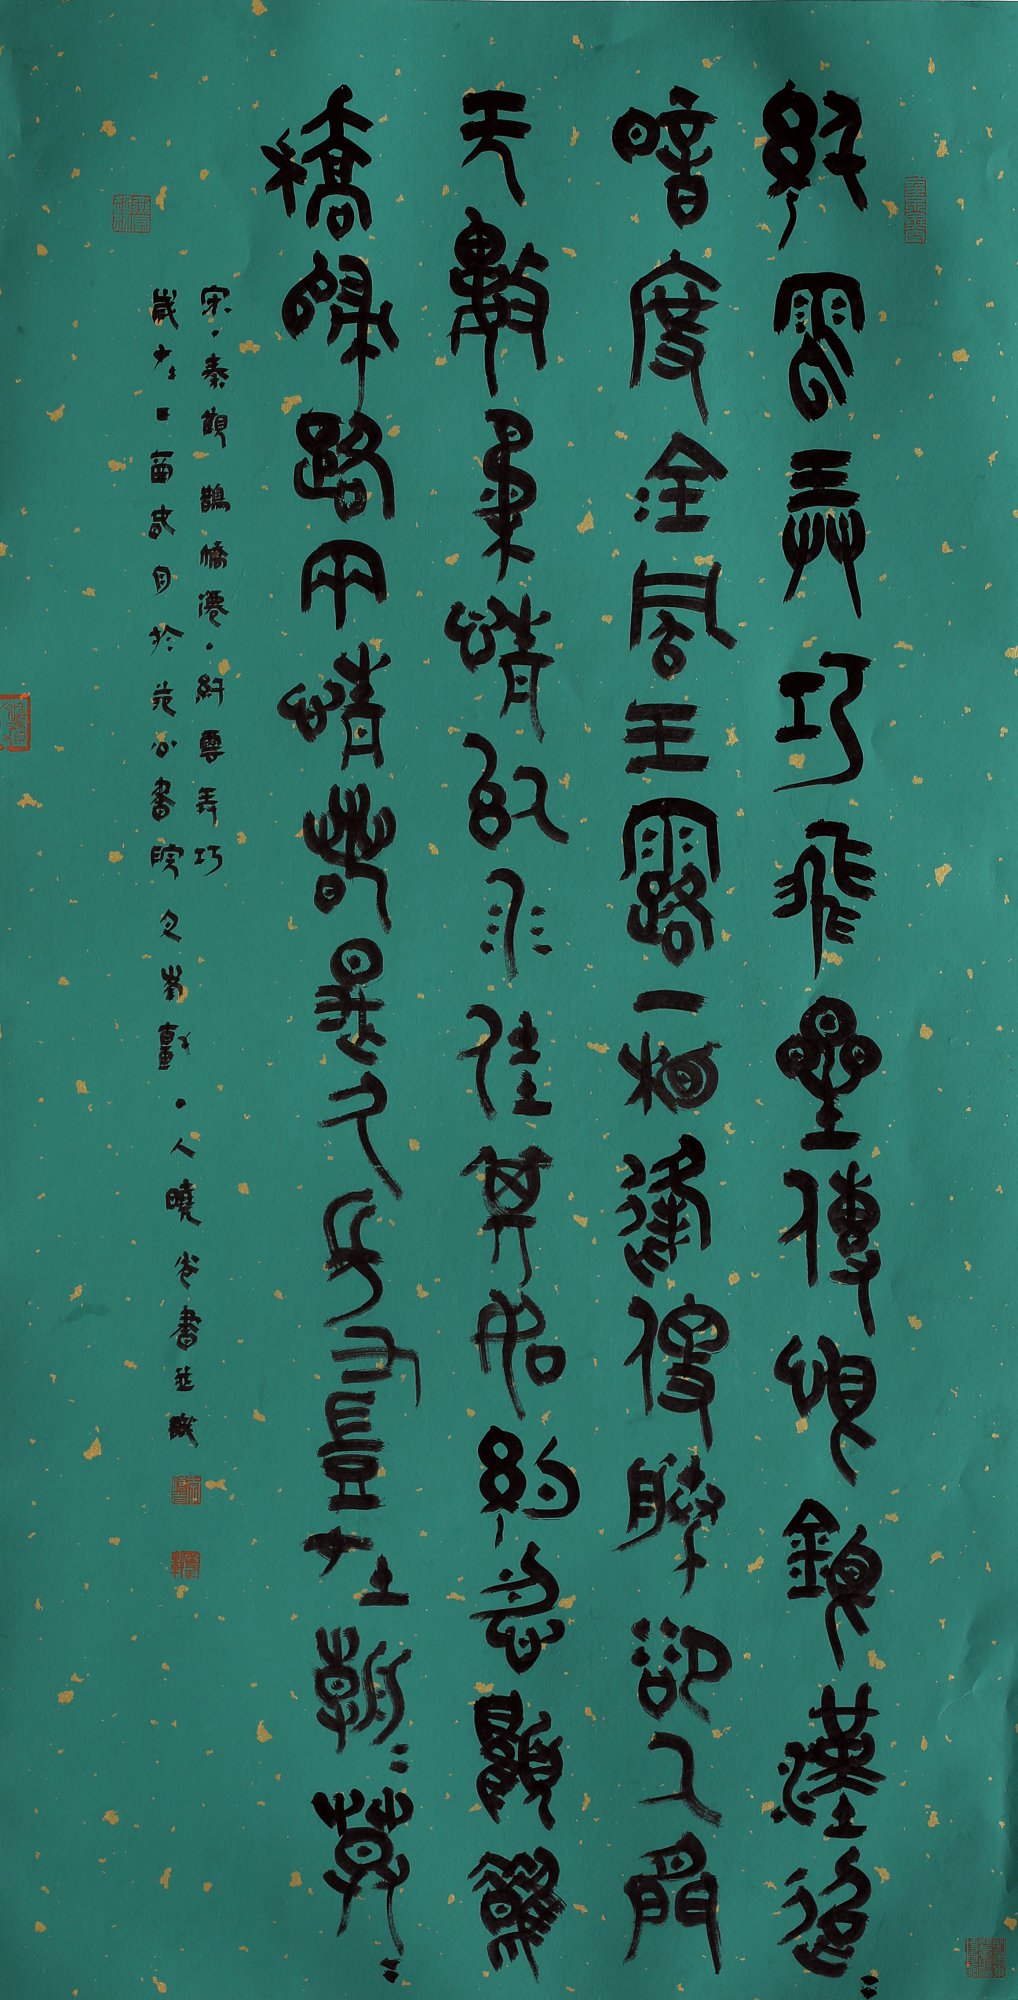 纤雲弄巧飛星傳恨銀漢迢〻
暗度金風玉露一相逢便勝卻人間
无數柔情似水佳期如約忍顧鵲
橋歸路兩情若是久長又豈在朝〻暮〻
宋·秦觀鵲橋僊·纤雲弄巧
歲在 月於范公書院文 ·人曉 書並識